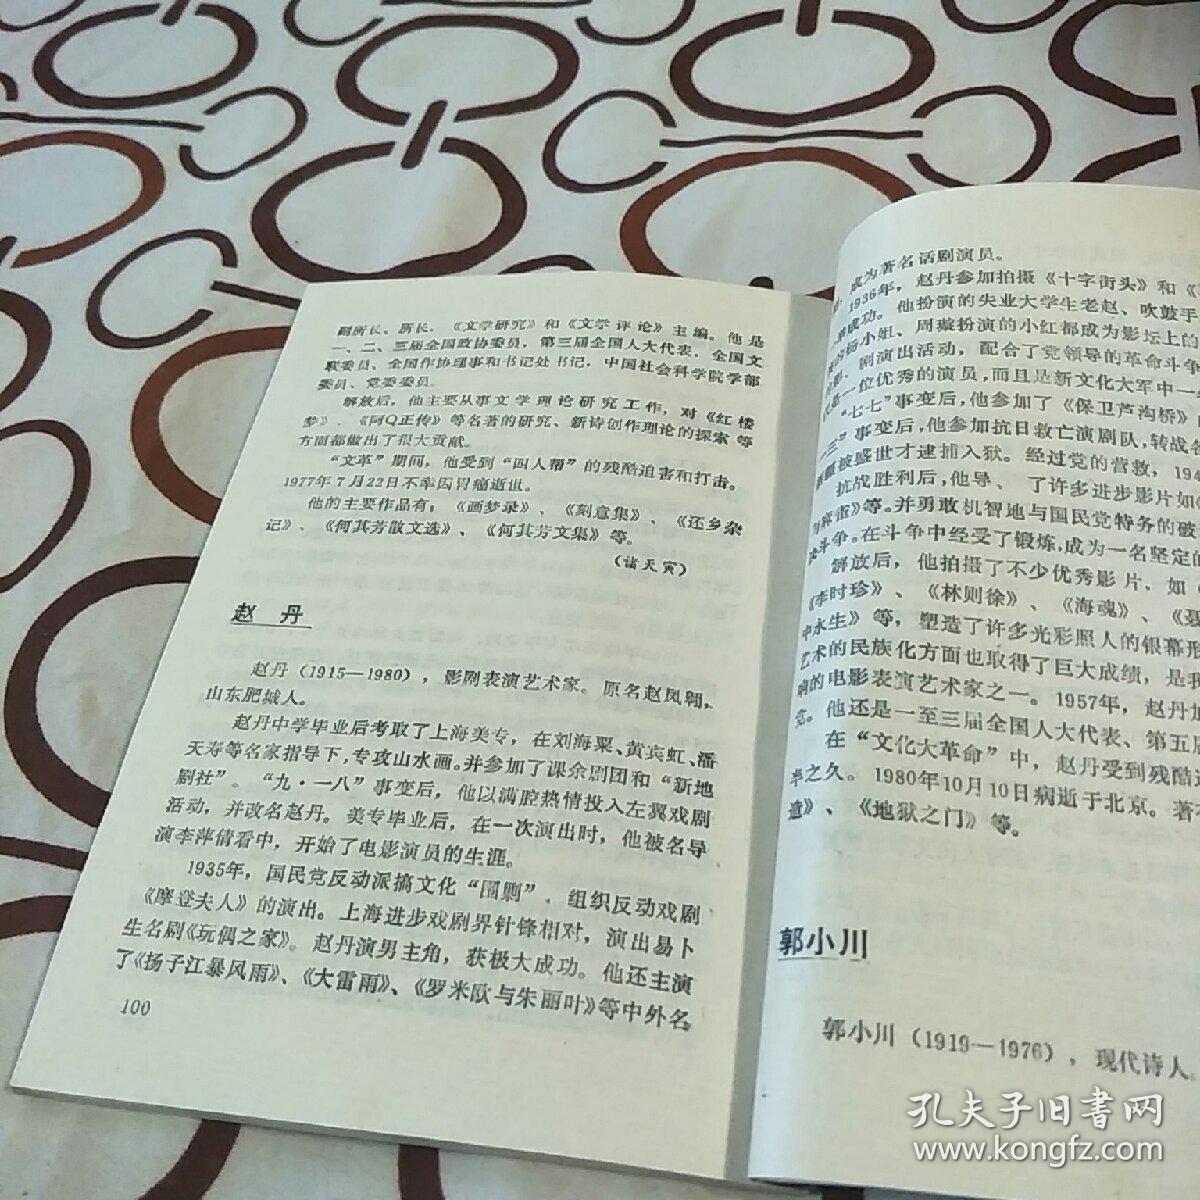 副所长、所长，《文学研究》和《文学评论》主编。他是
一、二、三届全国政协委员，第三届全国人大代表，全国文
联委员、全国作协理事和书记处书记，中国社会科学院学部
委员、党委委员。
解放后，他主要从事文学理论研究工作，对《红楼
梦》、《阿Q正传》等名著的研究、新诗创作理论的探索等
方面都做出了很大贡献。
“文革”期间，他受到“四人帮”的残酷迫害和打击。
1977年7月22日不幸因胃癌逝世。
他的主要作品有：《画梦录》、《刻意集》、《还乡杂
记》、《何其芳散文选》、《何其芳文集》等。
（诸天寅）
赵 丹
赵丹（1915—1980），影剧表演艺术家。原名赵凤翱，
山东肥城人。
赵丹中学毕业后考取了上海美专，在刘海粟、黄宾虹、潘
天寿等名家指导下，专攻山水画。并参加了课余剧团和“新地
剧社”。“九·一八”事变后，他以满腔热情投入左翼戏剧
活动，并改名赵丹。美专毕业后，在一次演出时，他被名导
演李萍倩看中，开始了电影演员的生涯。
1935年，国民党反动派搞文化“围剿”，组织反动戏剧
《摩登夫人》的演出。上海进步戏剧界针锋相对，演出易卜
生名剧《玩偶之家》。赵丹演男主角，获极大成功。他还主演
了《扬子江暴风雨》、《大雷雨》、《罗米欧与朱丽叶》等中外名
100
成为著名话剧演员。
1936年，赵丹参加拍摄《十字街头》和《
成功。他扮演的失业大学生老赵、吹鼓手
杨小姐、周璇扮演的小红都成为影坛上的
剧演出活动，配合了党领导的革命斗争
是一位优秀的演员，而且是新文化大军中一
“七七”事变后，他参加了《保卫芦沟桥》
三”事变后，他参加抗日救亡演剧队，转战各
疆被盛世才逮捕入狱。经过党的营救，194
抗战胜利后，他导、 了许多进步影片如《
与麻雀》等。并勇敢机智地与国民党特务的破
决斗争。在斗争中经受了锻炼，成为一名坚定的
解放后，他拍摄了不少优秀影片，如
《李时珍》、《林则徐》、《海魂》、《聂
中永生》等，塑造了许多光彩照人的银幕形
艺术的民族化方面也取得了巨大成绩，是我
响的电影表演艺术家之一。1957年，赵丹加
党。他还是一至三届全国人大代表、第五届
在“文化大革命”中，赵丹受到残酷迫
年之久。1980年10月10日病逝于北京。著
道》、《地狱之门》等。
郭小川
郭小川（1919—1976），现代诗人。
孔夫子旧书网
www.kongfz.com